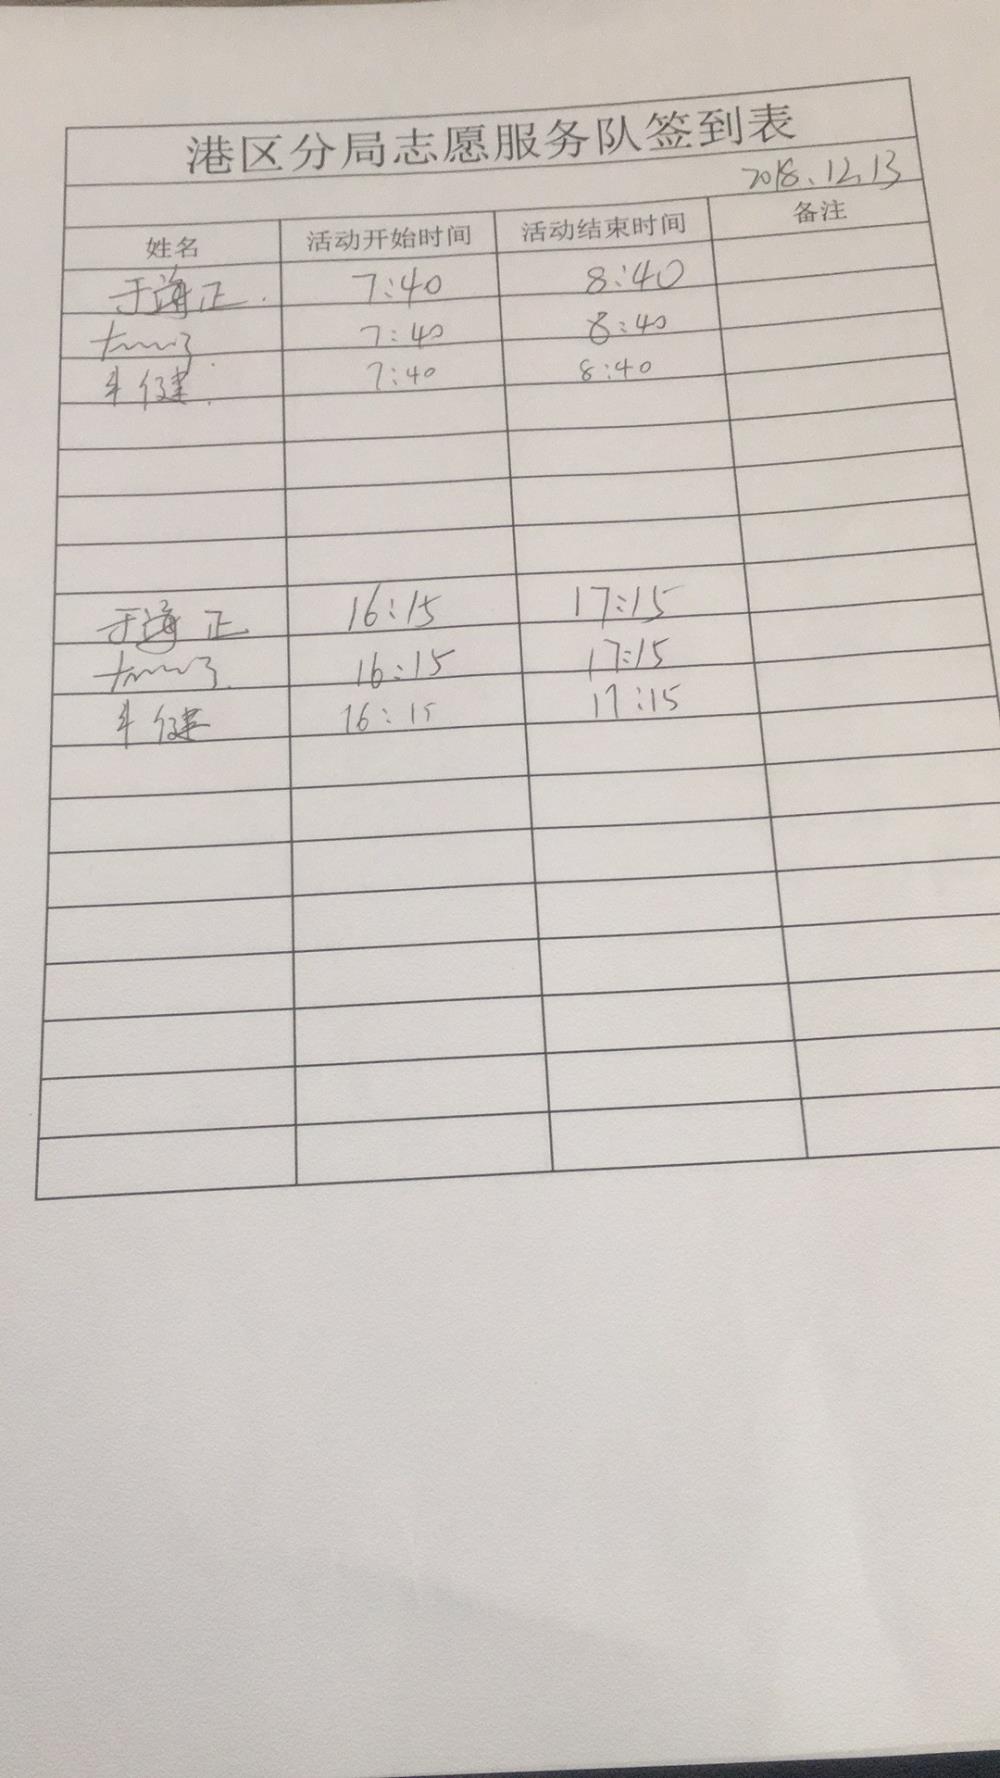 港区分局志愿服务队签到表
2018.12.13
姓名 活动开始时间 活动结束时间 备注
于海正 7:40 8:40
7:40 8:40
牛健 7:40 8:40
于海正 16:15 17:15
16:15 17:15
牛健 16:15 17:15